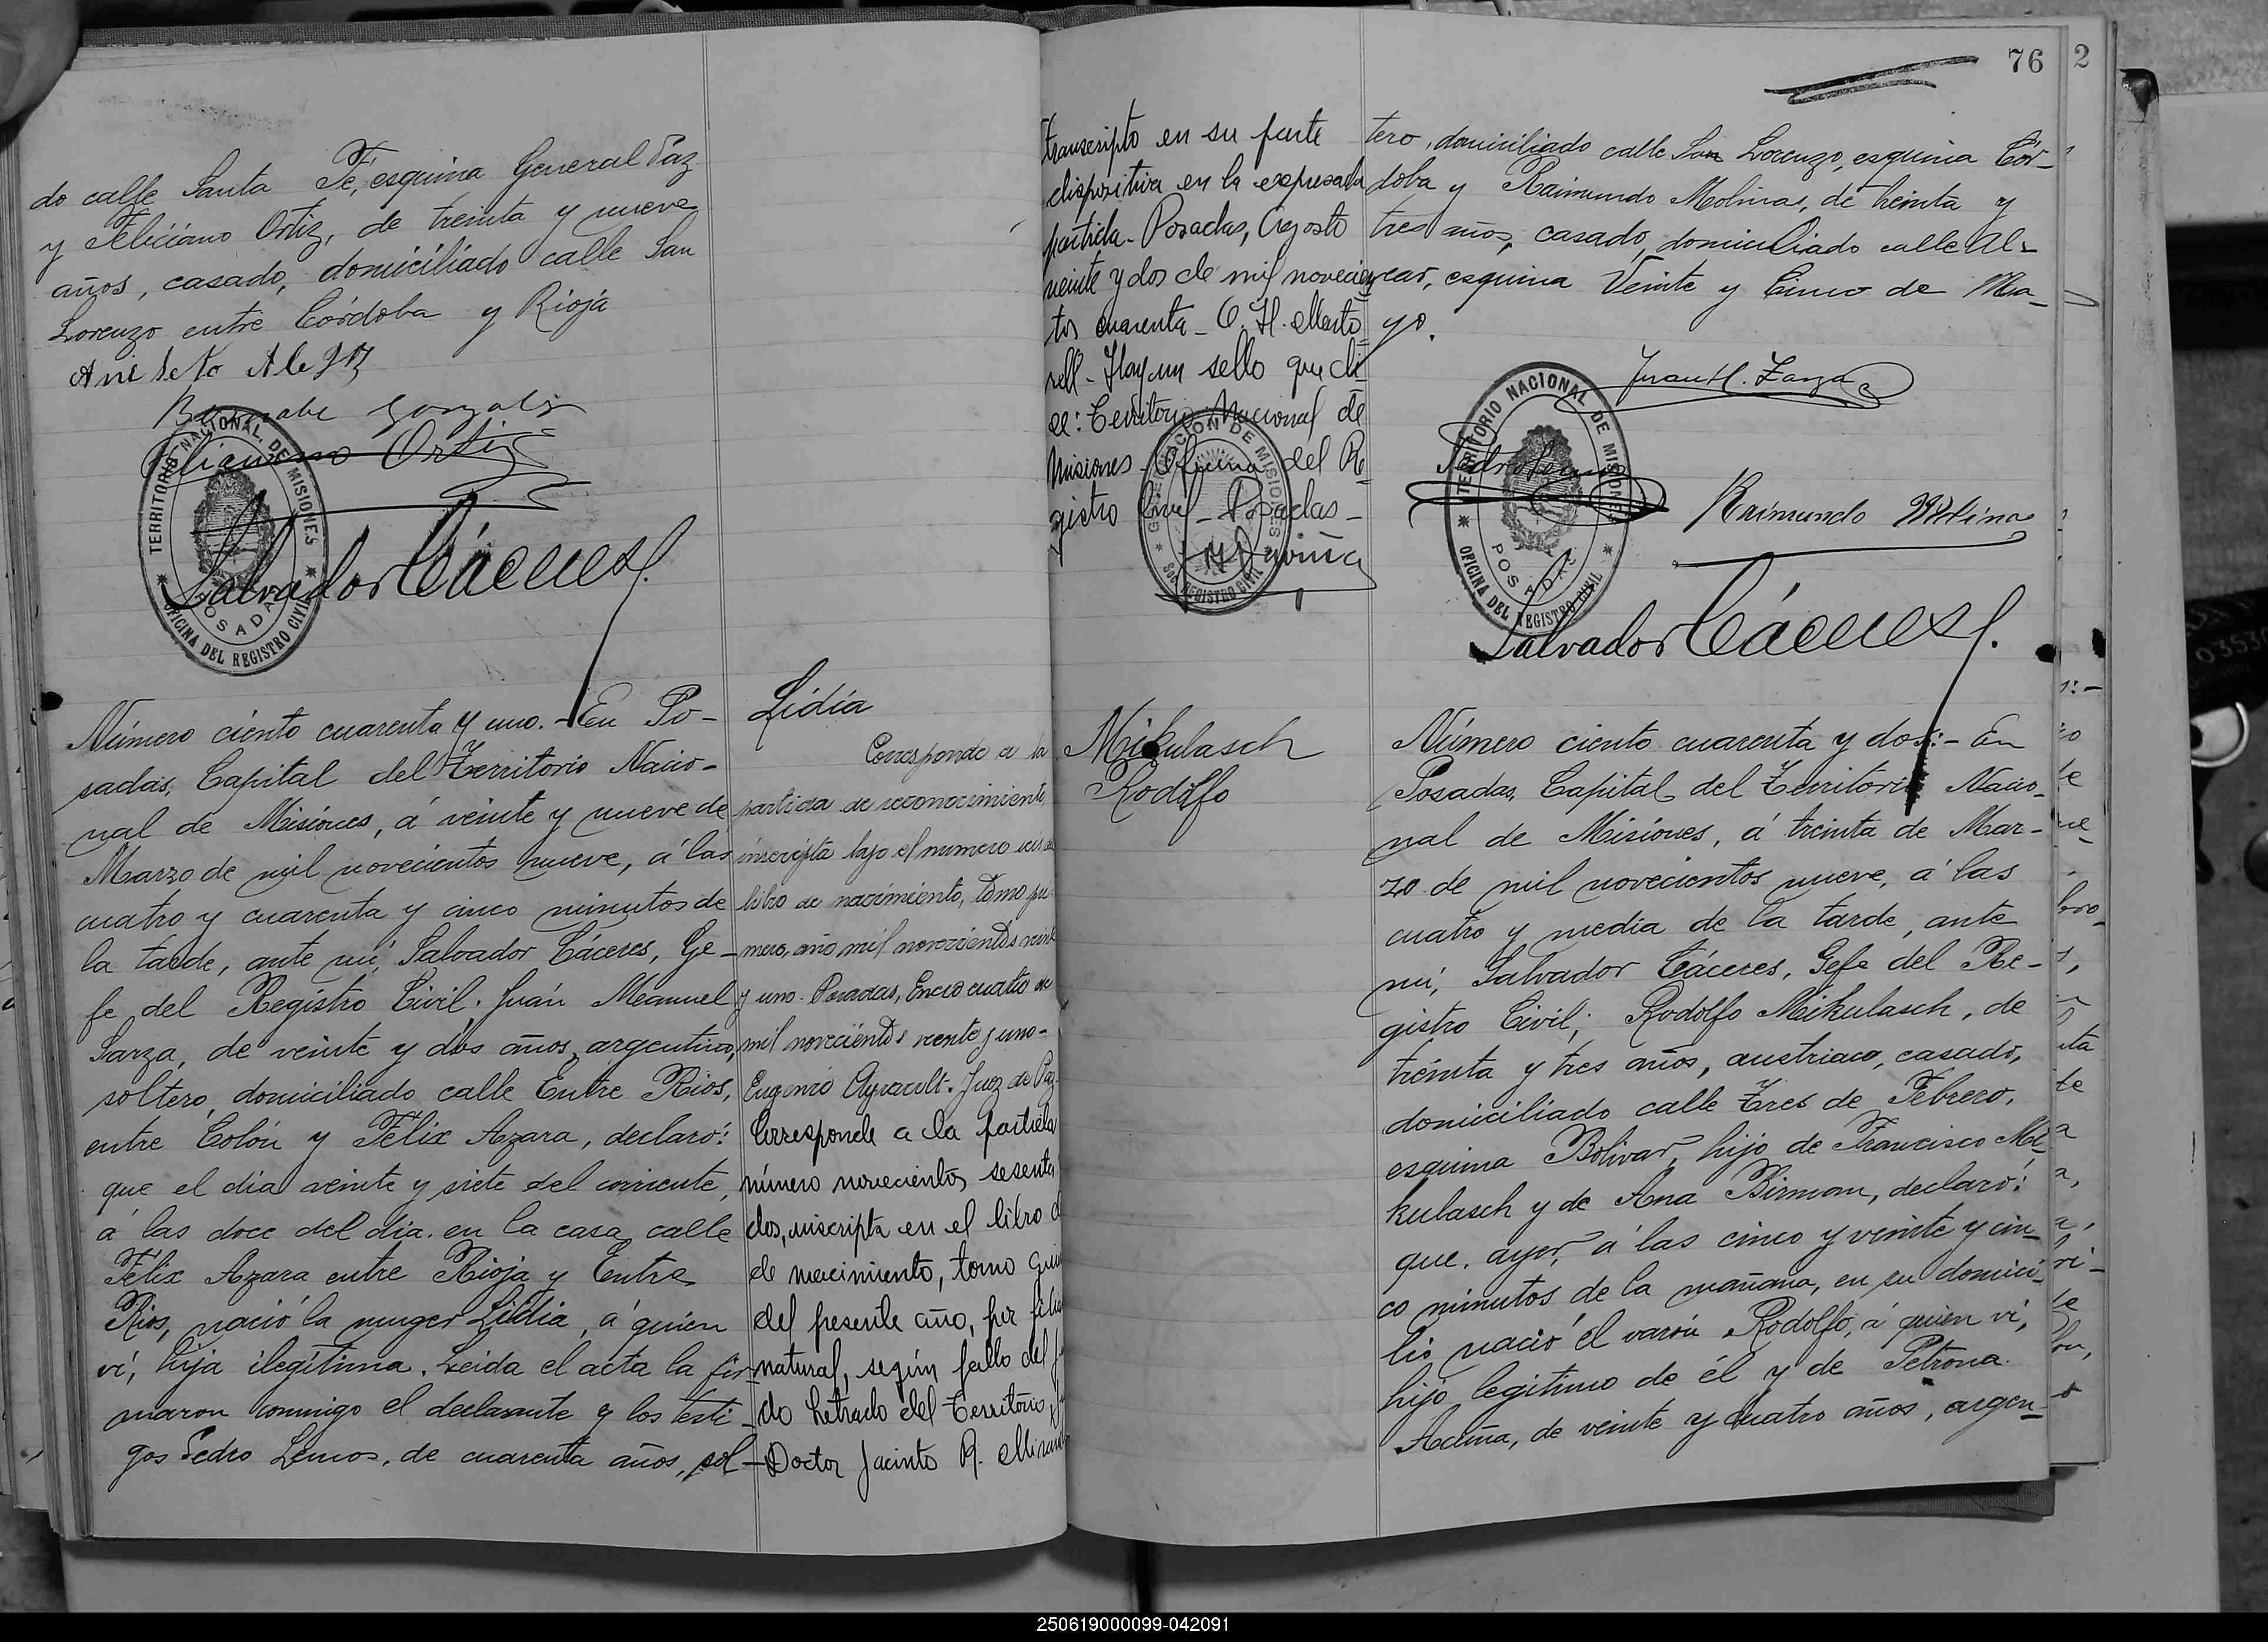 do calle Santa Fé, esquina General Paz
y Feliciano Ortiz, de treinta y nueve
años, casado, domiciliado calle San
Lorenzo entre Córdoba y Rioja
Bernabe Gonzalez
Feliciano Ortiz
TERRITORIO NACIONAL DE MISIONES
POSADAS
OFICINA DEL REGISTRO CIVIL
Salvador Cáceres
Número ciento cuarenta y uno.- En Po-
sadas, Capital del Territorio Nacio-
nal de Misiones, á veinte y nueve de
Marzo de mil novecientos nueve, á las
cuatro y cuarenta y cinco minutos de
la tarde, ante mí, Salvador Cáceres, Ge-
fe del Registro Civil; Juán Manuel
Sarza, de veinte y dós años, argentino,
soltero, domiciliado calle Entre Rios,
entre Colón y Félix Azara, declaró:
que el dia veinte y siete del corriente,
á las doce del dia, en la casa calle
Félix Azara entre Rioja y Entre
Rios, nació la muger Lidia, á quién
ví, hija ilegítima. Leida el acta la fir-
maron conmigo el declarante y los testi-
gos Pedro Lemos, de cuarenta años, sol-
Lidia
Corresponde a la
partida de reconocimiento,
inscripta bajo el numero
libro de nacimiento, tomo pri-
mero, año mil novecientos veinte
y uno. Posadas, Enero cuatro de
mil novecientos veinte y uno-
Eugenio Juez de Paz.
Corresponde a la partida
número novecientos sesenta
dos, inscripta en el libro
de nacimiento, tomo
del presente año, por
natural, según fallo del
do Letrado del Territorio,
Doctor Jacinto R.
transcripto en su parte
dispositiva en la expresada
partida- Posadas, Agosto
veinte y dos de mil novecien-
tos cuarenta- O. H. Marto
rell- Hay un sello que di
ce: Territorio Nacional de
Misiones- Oficina del Re
gistro Civil- Posadas-
GOBERNACION DE MISIONES
REGISTRO CIVIL
76
2
tero, domiciliado calle San Lorenzo, esquina Cór-
doba y Raimundo Molinas, de treinta y
tres años, casado, domiciliado calle Al-
vear, esquina Veinte y Cinco de Ma-
yo.
Juan M. Zarza
TERRITORIO NACIONAL DE MISIONES
POSADAS
OFICINA DEL REGISTRO CIVIL
Pedro Lemos
Raimundo Molina
Salvador Cáceres
Mikulasch
Rodolfo
Número ciento cuarenta y dos:- En
Posadas, Capital del Territorio Nacio-
nal de Misiones, á treinta de Mar-
zo de mil novecientos nueve, á las
cuatro y media de la tarde, ante
mí, Salvador Cáceres, Gefe del Re-
gistro Civil; Rodolfo Mikulasch, de
treinta y tres años, austriaco, casado,
domiciliado calle Tres de Febrero,
esquina Bolivar, hijo de Francisco Mi-
kulasch y de Ana Birmann, declaró:
que, ayer, á las cinco y veinte y cin-
co minutos de la mañana, en su domici-
lio nació el varón Rodolfo, á quien ví,
hijo legítimo de él y de Petrona
Acuña, de veinte y cuatro años, argen-
250619000099-042091